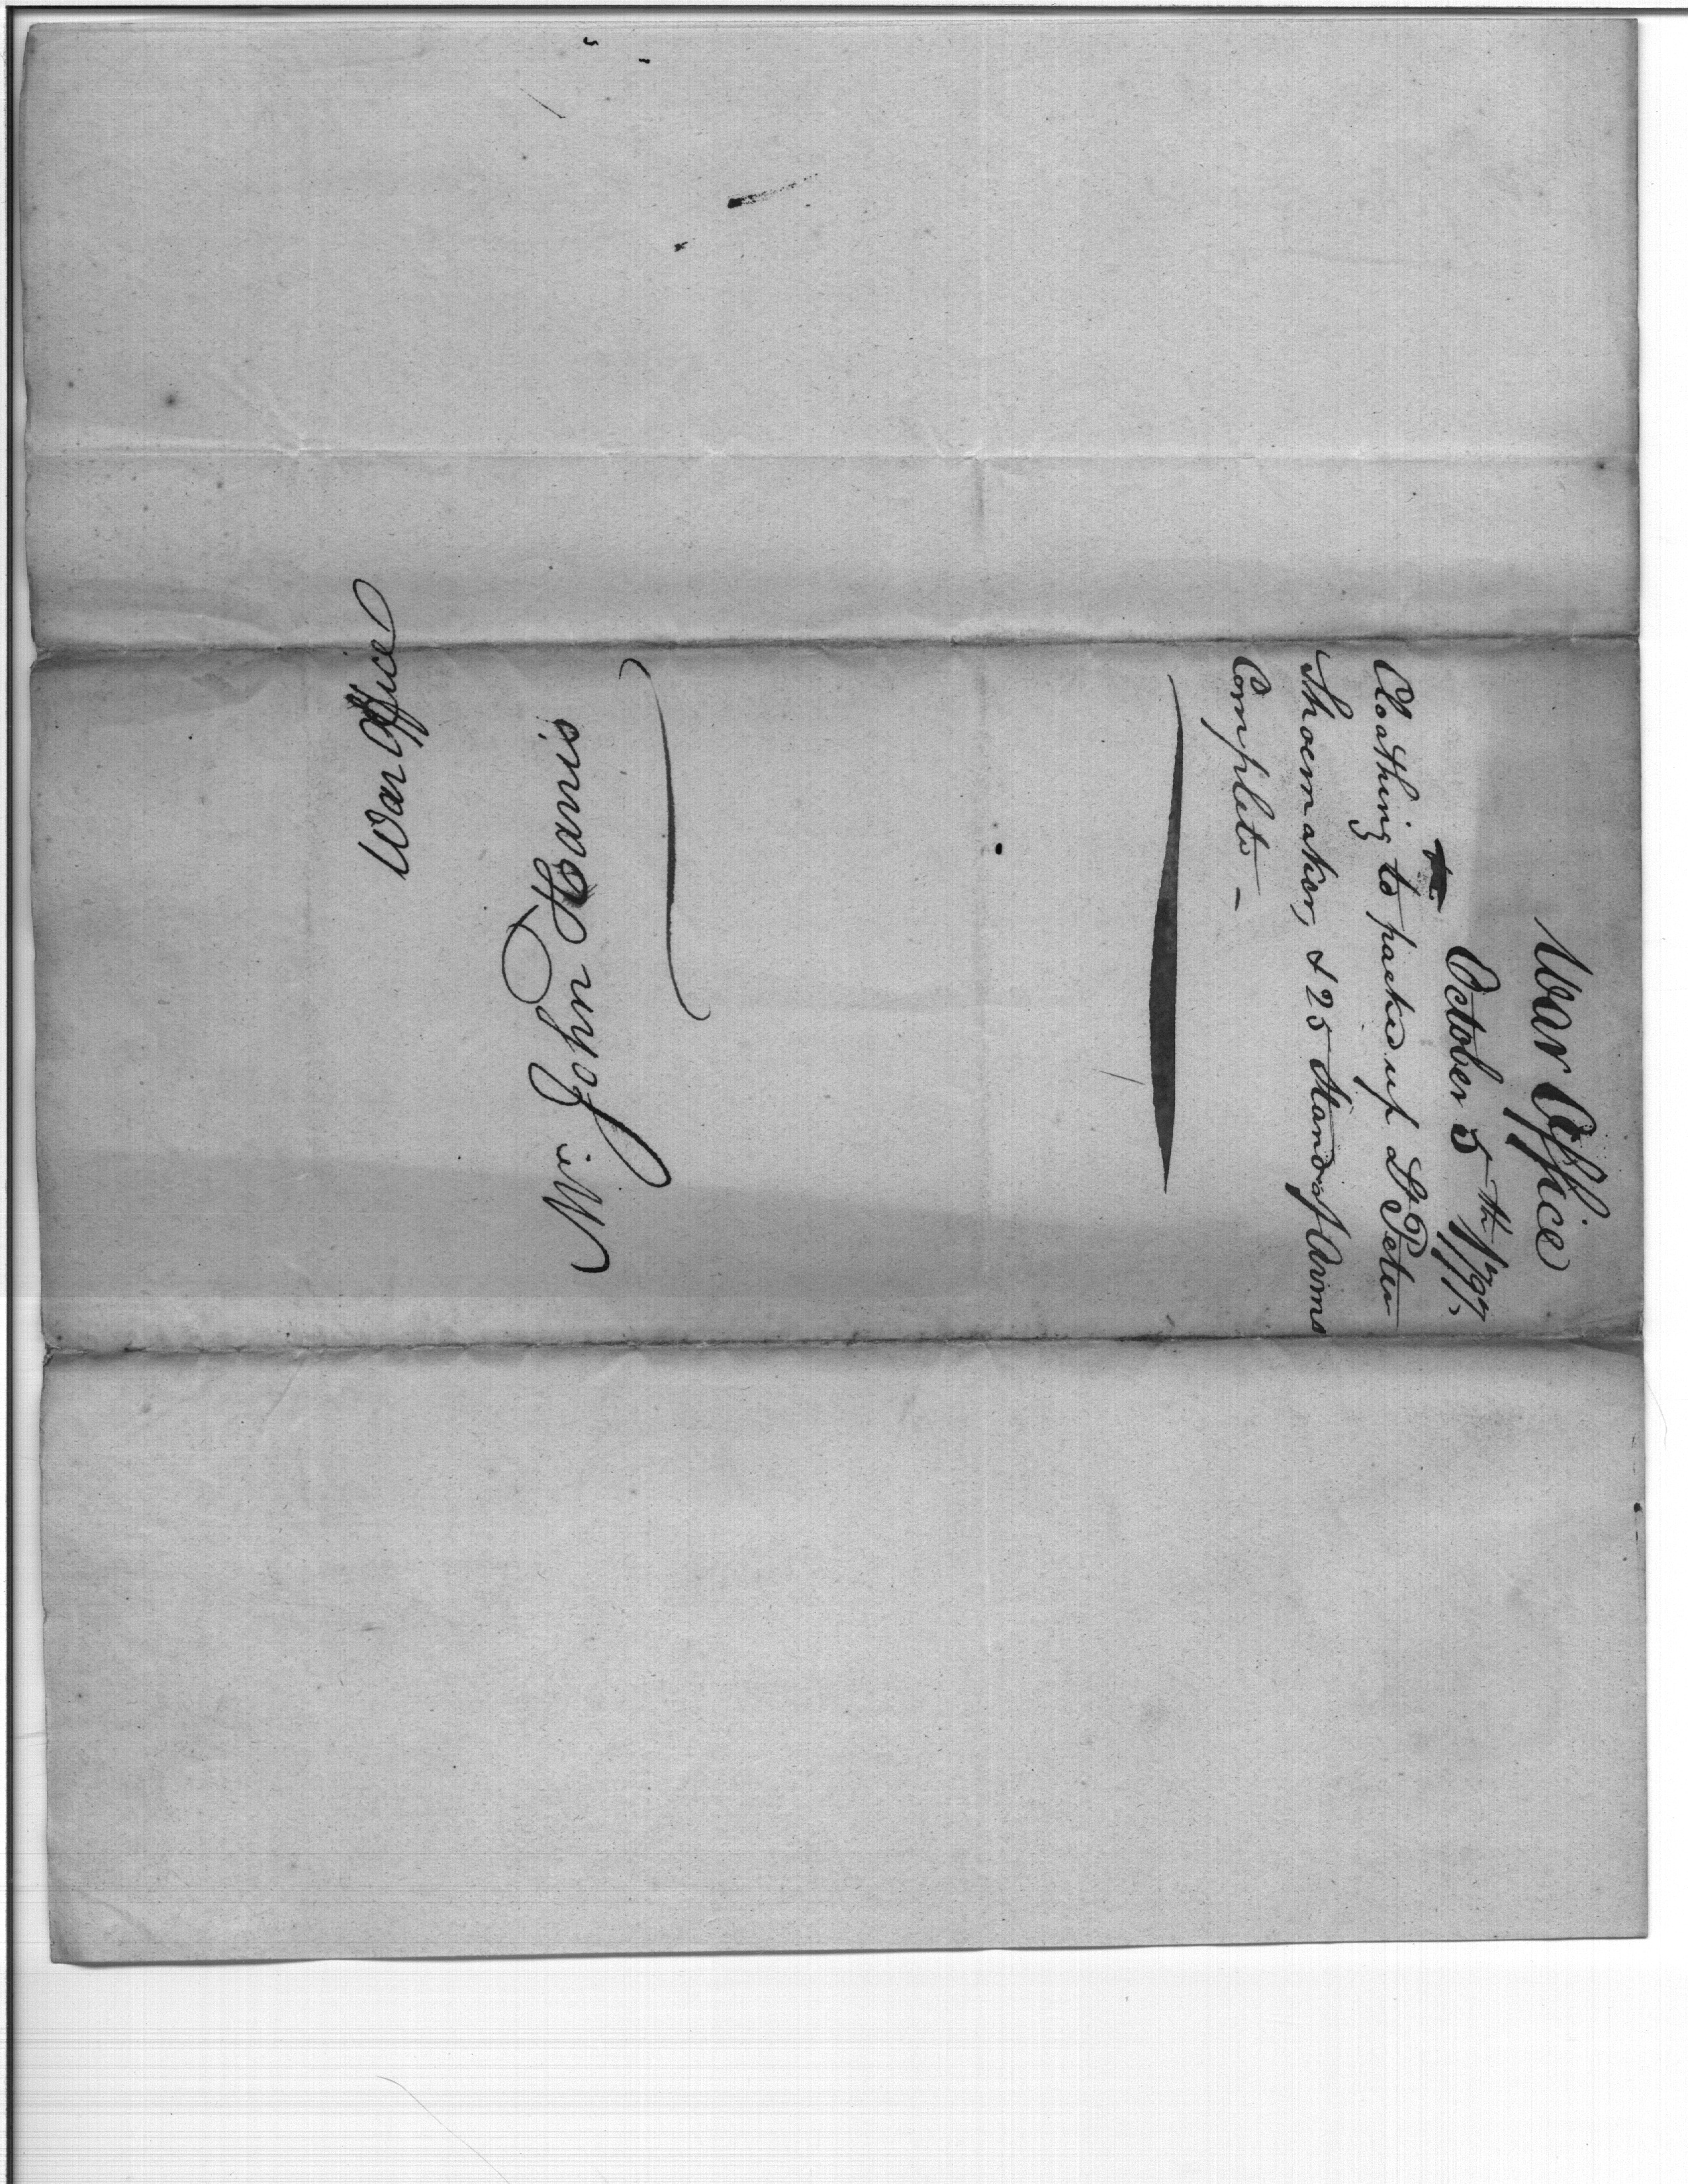 War Office
October 5th 1797.
Cloathing to packed up Lt Peter
Shoemaker, & 25 Stand of Arms
Complete -
Mr John Harris
War Office